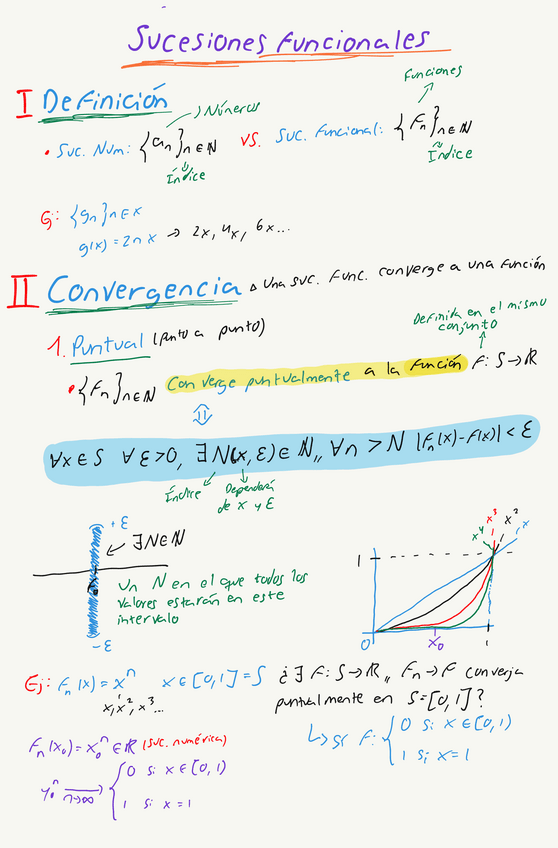 Sucesiones funcionales
I Definición
→ Números
Funciones
• Suc. Num: {aₙ}ₙ∈ℕ vs. Suc. Funcional: {Fₙ}ₙ∈ℕ
Índice
Índice
Ej: {gₙ}ₙ∈x
g(x) = 2nx → 2x, 4x, 6x...
II Convergencia Una suc. Func. converge a una función
1. Puntual (punto a punto)
Definida en el mismo
conjunto
• {Fₙ}ₙ∈ℕ Converge puntualmente a la función F: S→ℝ
⇕
∀x∈S ∀ε>0, ∃N(x,ε)∈ℕ,, ∀n>N |Fₙ(x)-F(x)|<ε
Índice
Dependerá
de x y ε
+ε
∃N∈ℕ
Un N en el que todos los
valores estarán en este
intervalo
-ε
x⁴ x³ x² x
1
0 x₀ 1
Ej: Fₙ(x) = xⁿ x∈[0,1] = S
x, x², x³...
¿∃ F: S→ℝ,, Fₙ→F converja
puntualmente en S=[0,1]?
↳ Sí F: { 0 si x∈[0,1)
1 si x=1
Fₙ(x₀) = x₀ⁿ ∈ℝ (suc. numérica)
x₀ⁿ →n→∞ { 0 si x∈[0,1)
1 si x=1